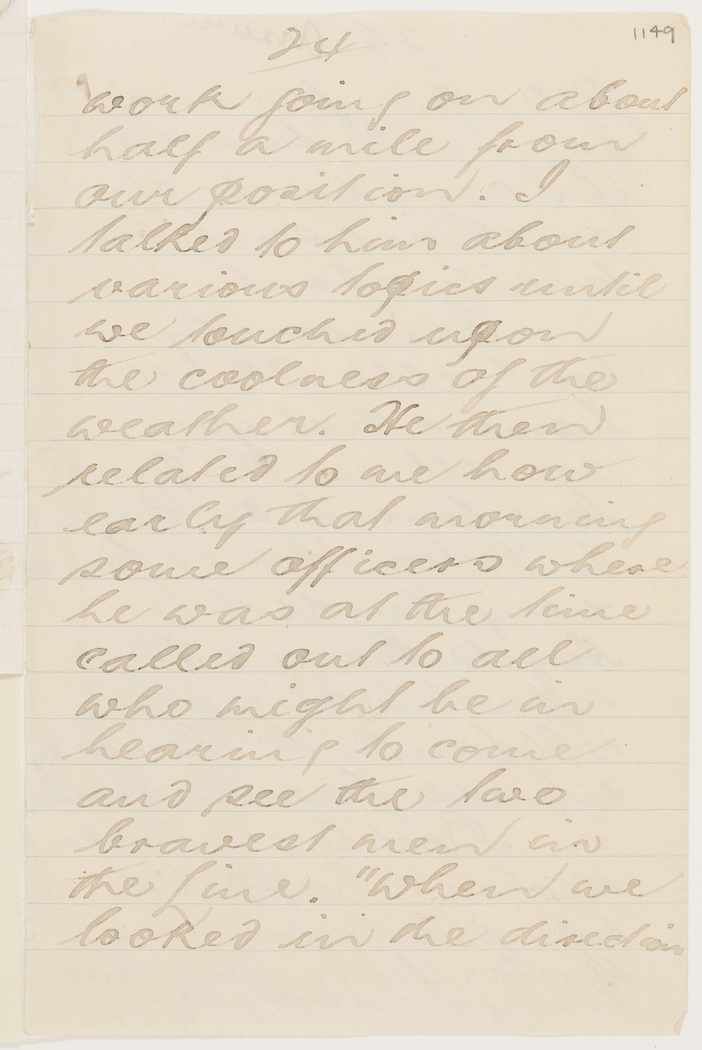 24
1149
work going on about
half a mile from
our position. I
talked to him about
various topics until
we touched upon
the coolness of the
weather. He then
related to me how
early that morning
some officers where
he was at the time
called out to all
who might be in
hearing to come
and see the two
bravest men in
the line. "When we
looked in the direction